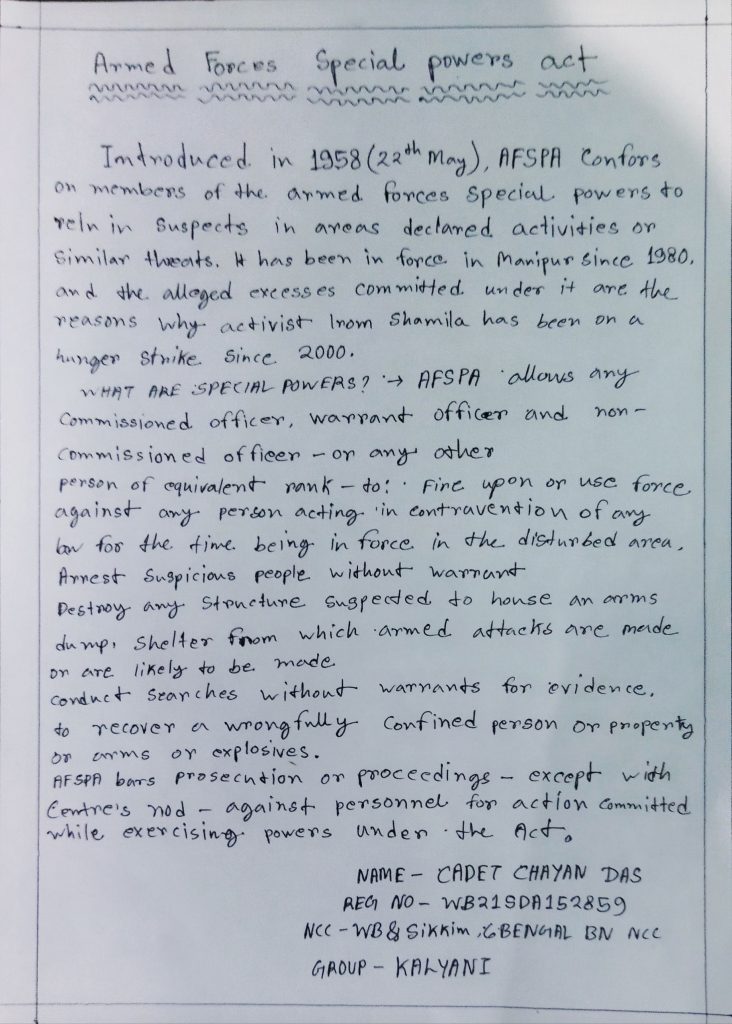 Armed Forces Special powers act
Introduced in 1958 (22th May), AFSPA Confors
on members of the armed forces special powers to
rein in suspects in areas declared activities or
similar threats. It has been in force in Manipur since 1980,
and the alleged excesses committed under it are the
reasons why activist Irom Shamila has been on a
hunger strike since 2000.
WHAT ARE SPECIAL POWERS? → AFSPA allows any
Commissioned officer, warrant officer and non-
commissioned officer - or any other
person of equivalent rank - to: · Fire upon or use force
against any person acting in contravention of any
law for the time being in force in the disturbed area.
Arrest suspicious people without warrant
Destroy any structure suspected to house an arms
dump, shelter from which armed attacks are made
or are likely to be made
conduct searches without warrants for evidence,
to recover a wrongfully confined person or property
or arms or explosives.
AFSPA bars prosecution or proceedings - except with
Centre's nod - against personnel for action committed
while exercising powers under the Act.
NAME - CADET CHAYAN DAS
REG NO - WB21SDA152859
NCC - WB & Sikkim, 6 BENGAL BN NCC
GROUP - KALYANI